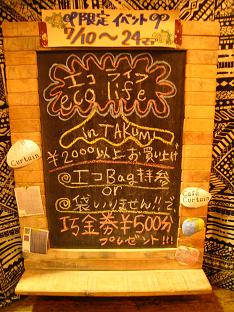 限定イベント
7/10～24
エコライフ
eco life
in TAKUMI
¥2000以上お買い上げ
@エコBag持参
or
@袋いりません!!で
巧金券¥500分
プレゼント!!!
Curtain
Café
Curtain